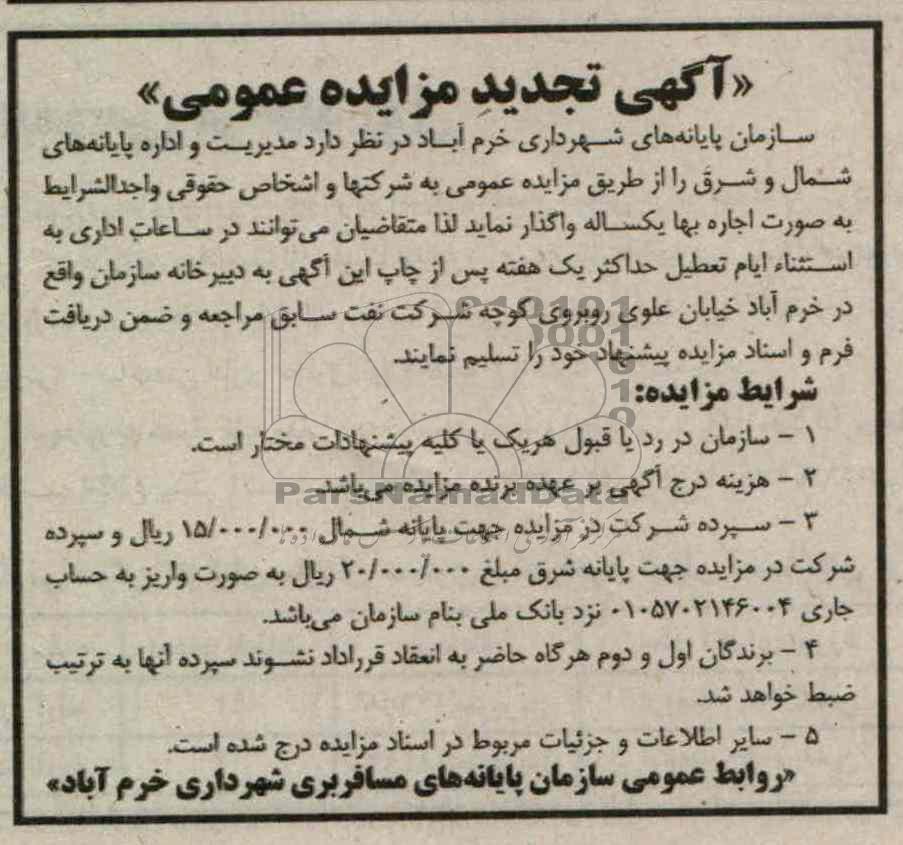 «آگهی تجدید مزایده عمومی»
سازمان پایانه‌های شهرداری خرم آباد در نظر دارد مدیریت و اداره پایانه‌های
شمال و شرق را از طریق مزایده عمومی به شرکتها و اشخاص حقوقی واجدالشرایط
به صورت اجاره بها یکساله واگذار نماید لذا متقاضیان می‌توانند در ساعات اداری به
استثناء ایام تعطیل حداکثر یک هفته پس از چاپ این آگهی به دبیرخانه سازمان واقع
در خرم آباد خیابان علوی روبروی کوچه شرکت نفت سابق مراجعه و ضمن دریافت
فرم و اسناد مزایده پیشنهاد خود را تسلیم نمایند.
شرایط مزایده:
۱ - سازمان در رد یا قبول هریک یا کلیه پیشنهادات مختار است.
۲ - هزینه درج آگهی بر عهده برنده مزایده می‌باشد.
ParsNamadData
۳ - سپرده شرکت در مزایده جهت پایانه شمال ۱۵/۰۰۰/۰۰۰ ریال و سپرده
شرکت در مزایده جهت پایانه شرق مبلغ ۲۰/۰۰۰/۰۰۰ ریال به صورت واریز به حساب
جاری ۰۱۰۵۷۰۲۱۴۶۰۰۴ نزد بانک ملی بنام سازمان می‌باشد.
۴ - برندگان اول و دوم هرگاه حاضر به انعقاد قرراداد نشوند سپرده آنها به ترتیب
ضبط خواهد شد.
۵ - سایر اطلاعات و جزئیات مربوط در اسناد مزایده درج شده است.
«روابط عمومی سازمان پایانه‌های مسافربری شهرداری خرم آباد»